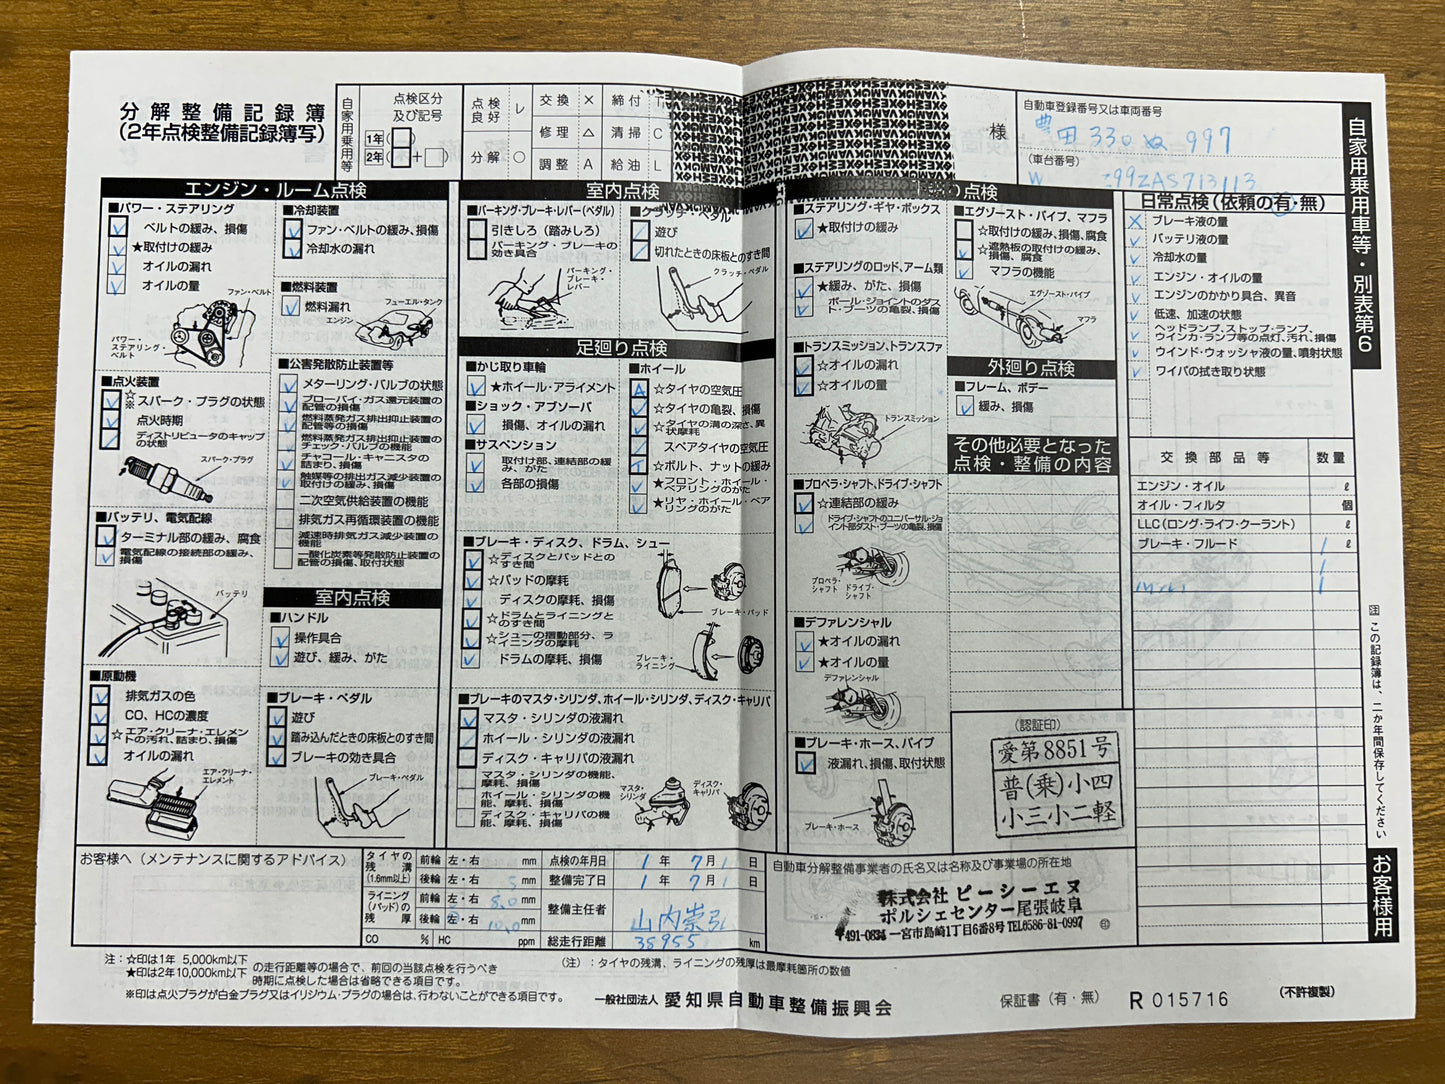 分解整備記録簿
(2年点検整備記録簿写)
自家用乗用等
点検区分
及び記号
1年(
2年( + )
点検良好 レ
分解 ○
交換 ×
修理 △
調整 A
締付 T
清掃 C
給油 L
様
自動車登録番号又は車両番号
豊田330ぬ997
(車台番号)
99ZAS713113
自家用乗用車等・別表第6
エンジン・ルーム点検
■パワー・ステアリング
ベルトの緩み、損傷
★取付けの緩み
オイルの漏れ
オイルの量
ファン・ベルト
パワー・ステアリング・ベルト
■点火装置
☆※スパーク・プラグの状態
点火時期
ディストリビュータのキャップの状態
スパーク・プラグ
■バッテリ、電気配線
ターミナル部の緩み、腐食
電気配線の接続部の緩み、損傷
バッテリ
■原動機
排気ガスの色
CO、HCの濃度
☆エア・クリーナ・エレメントの汚れ、詰まり、損傷
オイルの漏れ
エア・クリーナ・エレメント
■冷却装置
ファン・ベルトの緩み、損傷
冷却水の漏れ
■燃料装置
燃料漏れ
フューエル・タンク
エンジン
■公害発散防止装置等
メターリング・バルブの状態
ブローバイ・ガス還元装置の配管の損傷
燃料蒸発ガス排出抑止装置の配管等の損傷
燃料蒸発ガス排出抑止装置のチェック・バルブの機能
チャコール・キャニスタの詰まり、損傷
触媒等の排出ガス減少装置の取付けの緩み、損傷
二次空気供給装置の機能
排気ガス再循環装置の機能
減速時排気ガス減少装置の機能
一酸化炭素等発散防止装置の配管の損傷、取付状態
室内点検
■ハンドル
操作具合
遊び、緩み、がた
■ブレーキ・ペダル
遊び
踏み込んだときの床板とのすき間
ブレーキの効き具合
ブレーキ・ペダル
室内点検
■パーキング・ブレーキ・レバー(ペダル)
引きしろ(踏みしろ)
パーキング・ブレーキの効き具合
パーキング・ブレーキ・レバー
■クラッチ・ペダル
遊び
切れたときの床板とのすき間
クラッチ・ペダル
足廻り点検
■かじ取り車輪
★ホイール・アライメント
■ショック・アブソーバ
損傷、オイルの漏れ
■サスペンション
取付部、連結部の緩み、がた
各部の損傷
■ホイール
☆タイヤの空気圧
☆タイヤの亀裂、損傷
☆タイヤの溝の深さ、異状摩耗
スペアタイヤの空気圧
☆ボルト、ナットの緩み
★フロント・ホイール・ベアリングのがた
★リヤ・ホイール・ベアリングのがた
■ブレーキ・ディスク、ドラム、シュー
☆ディスクとパッドとのすき間
☆パッドの摩耗
ディスクの摩耗、損傷
☆ドラムとライニングとのすき間
☆シューの摺動部分、ライニングの摩耗
ドラムの摩耗、損傷
ブレーキ・パッド
ブレーキ・ライニング
■ブレーキのマスタ・シリンダ、ホイール・シリンダ、ディスク・キャリパ
マスタ・シリンダの液漏れ
ホイール・シリンダの液漏れ
ディスク・キャリパの液漏れ
マスタ・シリンダの機能、摩耗、損傷
ホイール・シリンダの機能、摩耗、損傷
ディスク・キャリパの機能、摩耗、損傷
マスタ・シリンダ
ディスク・キャリパ
り点検
■ステアリング・ギヤ・ボックス
★取付けの緩み
■ステアリングのロッド、アーム類
★緩み、がた、損傷
ボール・ジョイントのダスト・ブーツの亀裂、損傷
■トランスミッション、トランスファ
☆オイルの漏れ
☆オイルの量
トランスミッション
■プロペラ・シャフト、ドライブ・シャフト
☆連結部の緩み
ドライブ・シャフトのユニバーサル・ジョイント部ダスト・ブーツの亀裂、損傷
プロペラ・シャフト
ドライブ・シャフト
■デファレンシャル
★オイルの漏れ
★オイルの量
デファレンシャル
■ブレーキ・ホース、パイプ
液漏れ、損傷、取付状態
ブレーキ・ホース
■エグゾースト・パイプ、マフラ
☆取付けの緩み、損傷、腐食
☆遮熱板の取付けの緩み、損傷、腐食
マフラの機能
エグゾースト・パイプ
マフラ
外廻り点検
■フレーム、ボデー
緩み、損傷
その他必要となった点検・整備の内容
(認証印)
愛第8851号
普(乗)小四
小三小二軽
日常点検(依頼の有・無)
ブレーキ液の量
バッテリ液の量
冷却水の量
エンジン・オイルの量
エンジンのかかり具合、異音
低速、加速の状態
ヘッドランプ、ストップ・ランプ、ウインカ・ランプ等の点灯、汚れ、損傷
ウインド・ウォッシャ液の量、噴射状態
ワイパの拭き取り状態
交換部品等 数量
エンジン・オイル ℓ
オイル・フィルタ 個
LLC(ロング・ライフ・クーラント) ℓ
ブレーキ・フルード 1 ℓ
1
1
注 この記録簿は、二か年間保存してください
お客様用
お客様へ(メンテナンスに関するアドバイス)
タイヤの残溝(1.6mm以上)
前輪 左・右 mm
後輪 左・右 5 mm
ライニング(パッド)の残厚
前輪 左・右 8.0 mm
後輪 左・右 10.0 mm
CO % HC ppm
点検の年月日 1年7月1日
整備完了日 1年7月1日
整備主任者 山内崇弘
総走行距離 38955 km
自動車分解整備事業者の氏名又は名称及び事業場の所在地
株式会社 ピーシーエヌ
ポルシェセンター尾張岐阜
〒491-0831 一宮市島崎1丁目6番8号 TEL0586-81-0997
印
注：☆印は1年 5,000km以下
★印は2年10,000km以下
の走行距離等の場合で、前回の当該点検を行うべき時期に点検した場合は省略できる項目です。
※印は点火プラグが白金プラグ又はイリジウム・プラグの場合は、行わないことができる項目です。
(注)：タイヤの残溝、ライニングの残厚は最摩耗箇所の数値
一般社団法人 愛知県自動車整備振興会
保証書(有・無)
R 015716
(不許複製)